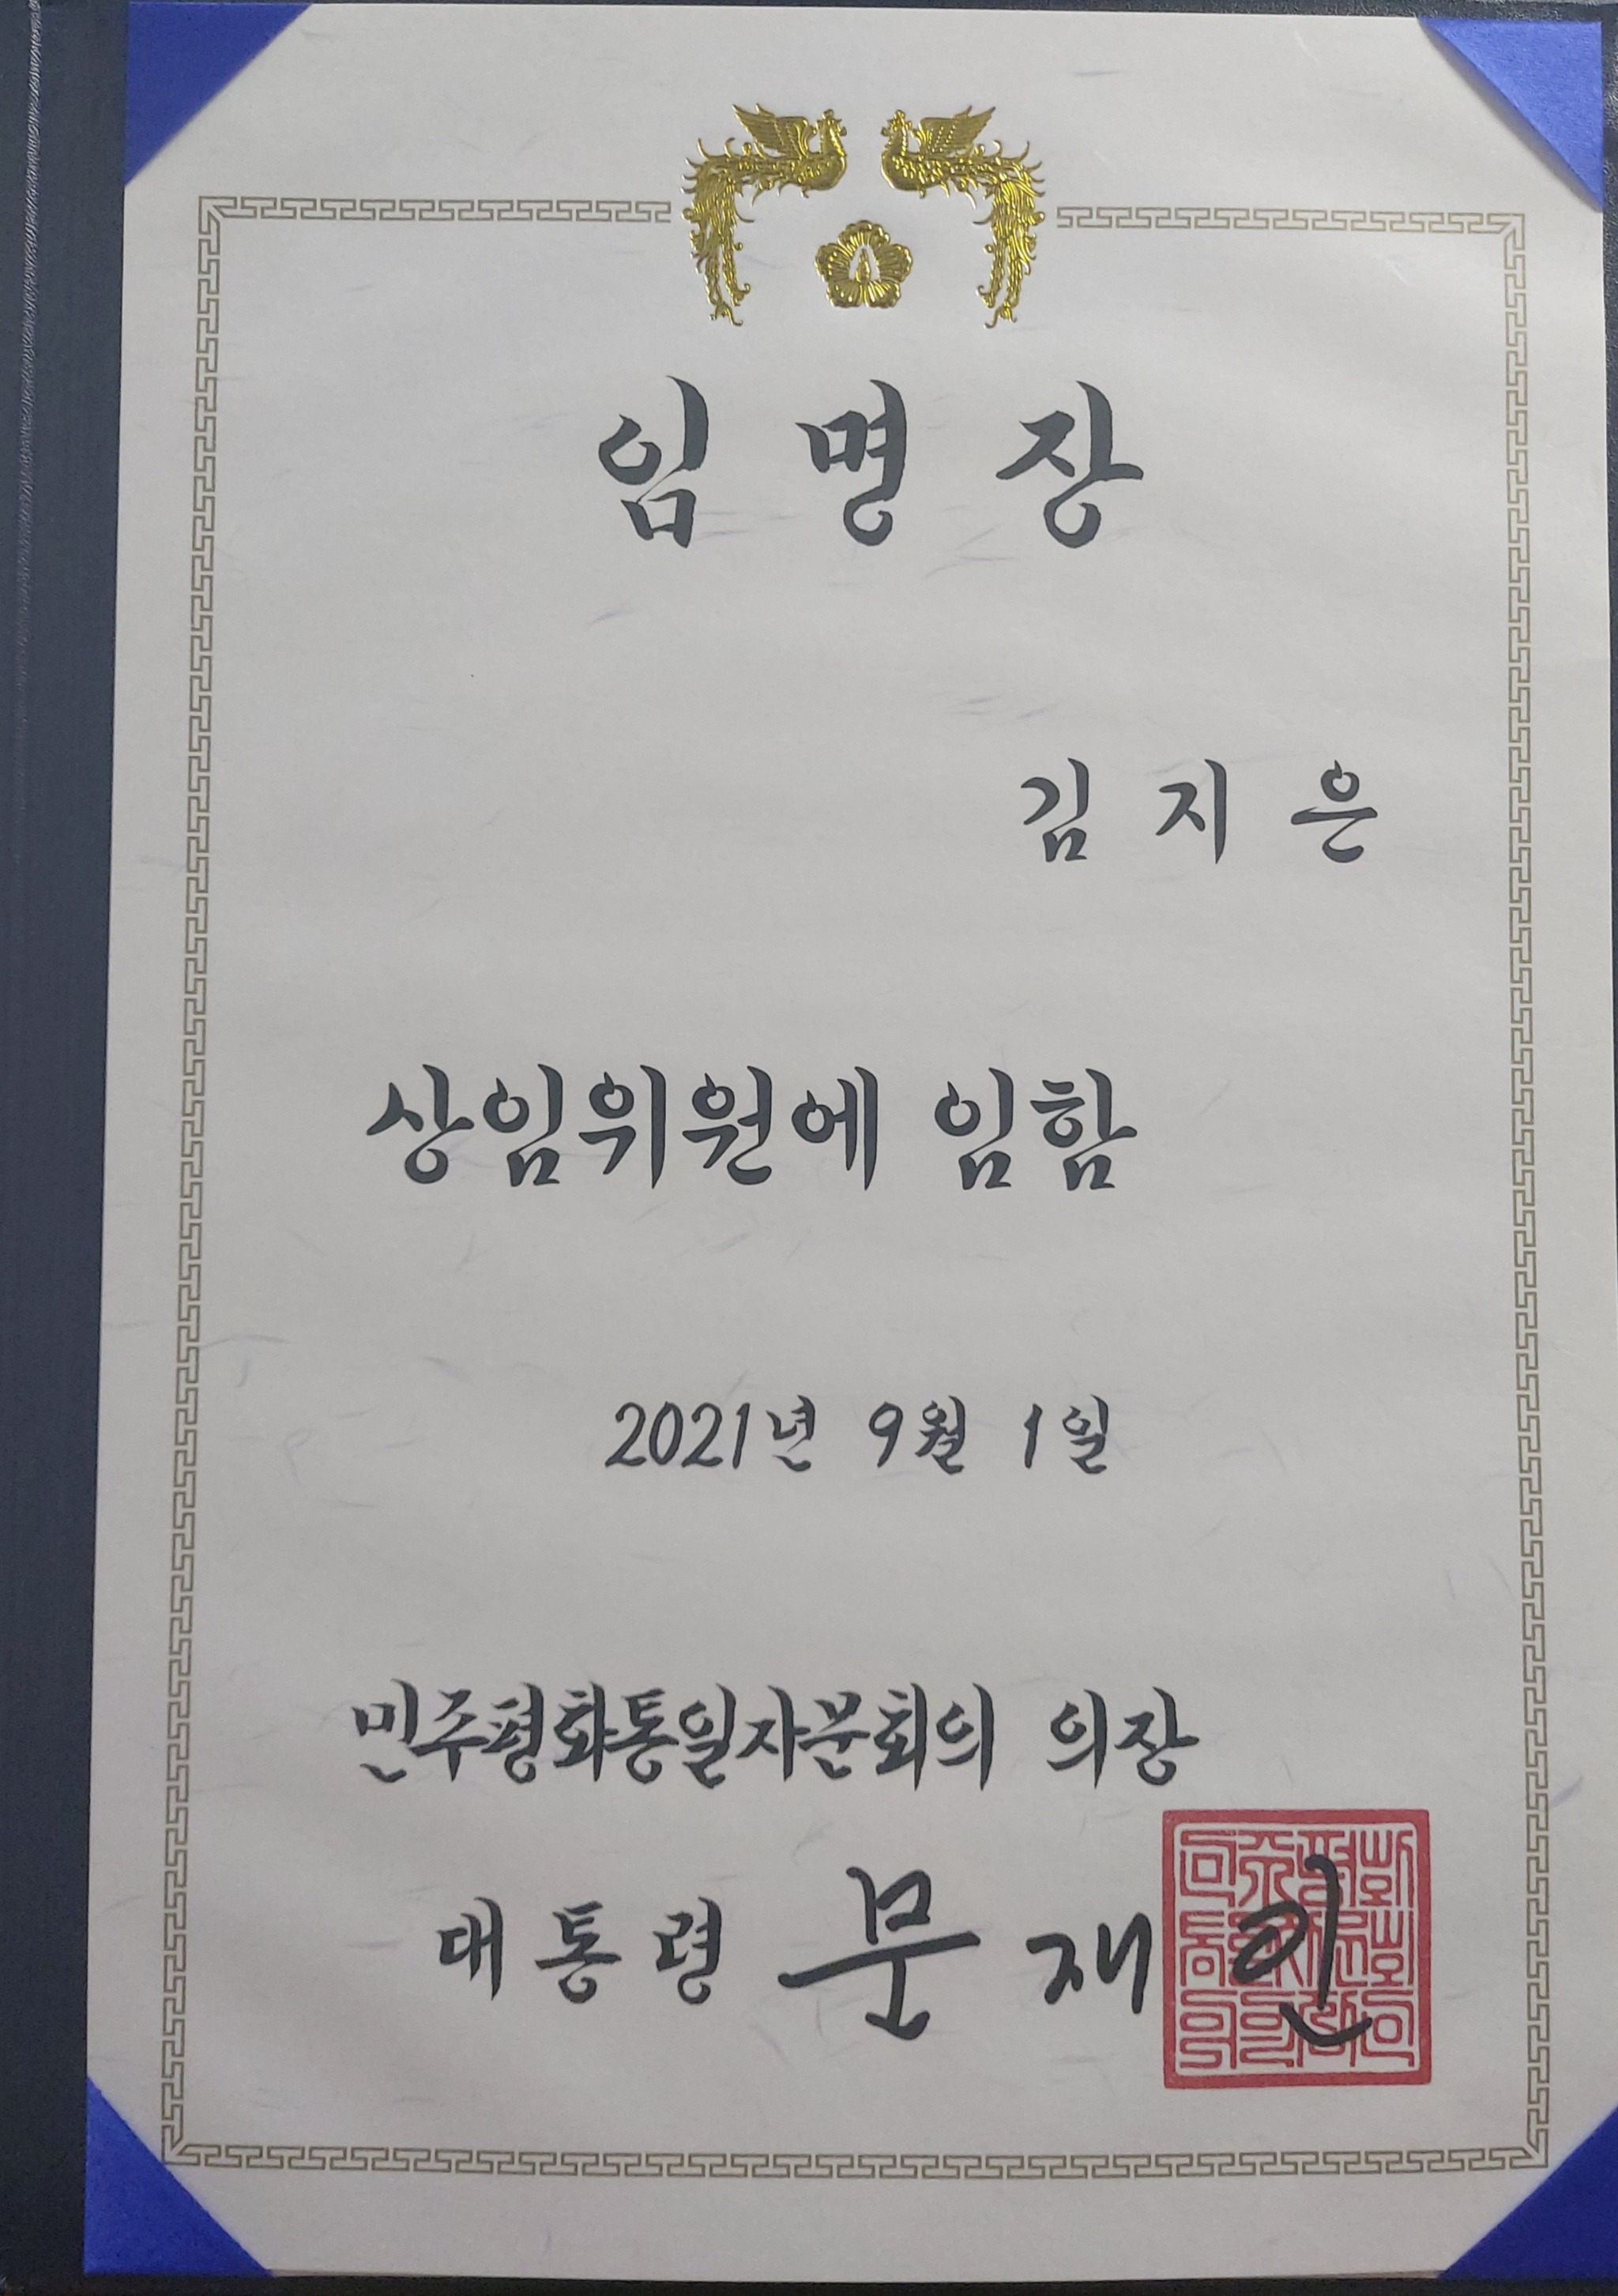 임명장
김지은
상임위원에 임함
2021년 9월 1일
민주평화통일자문회의 의장
대통령 문재인